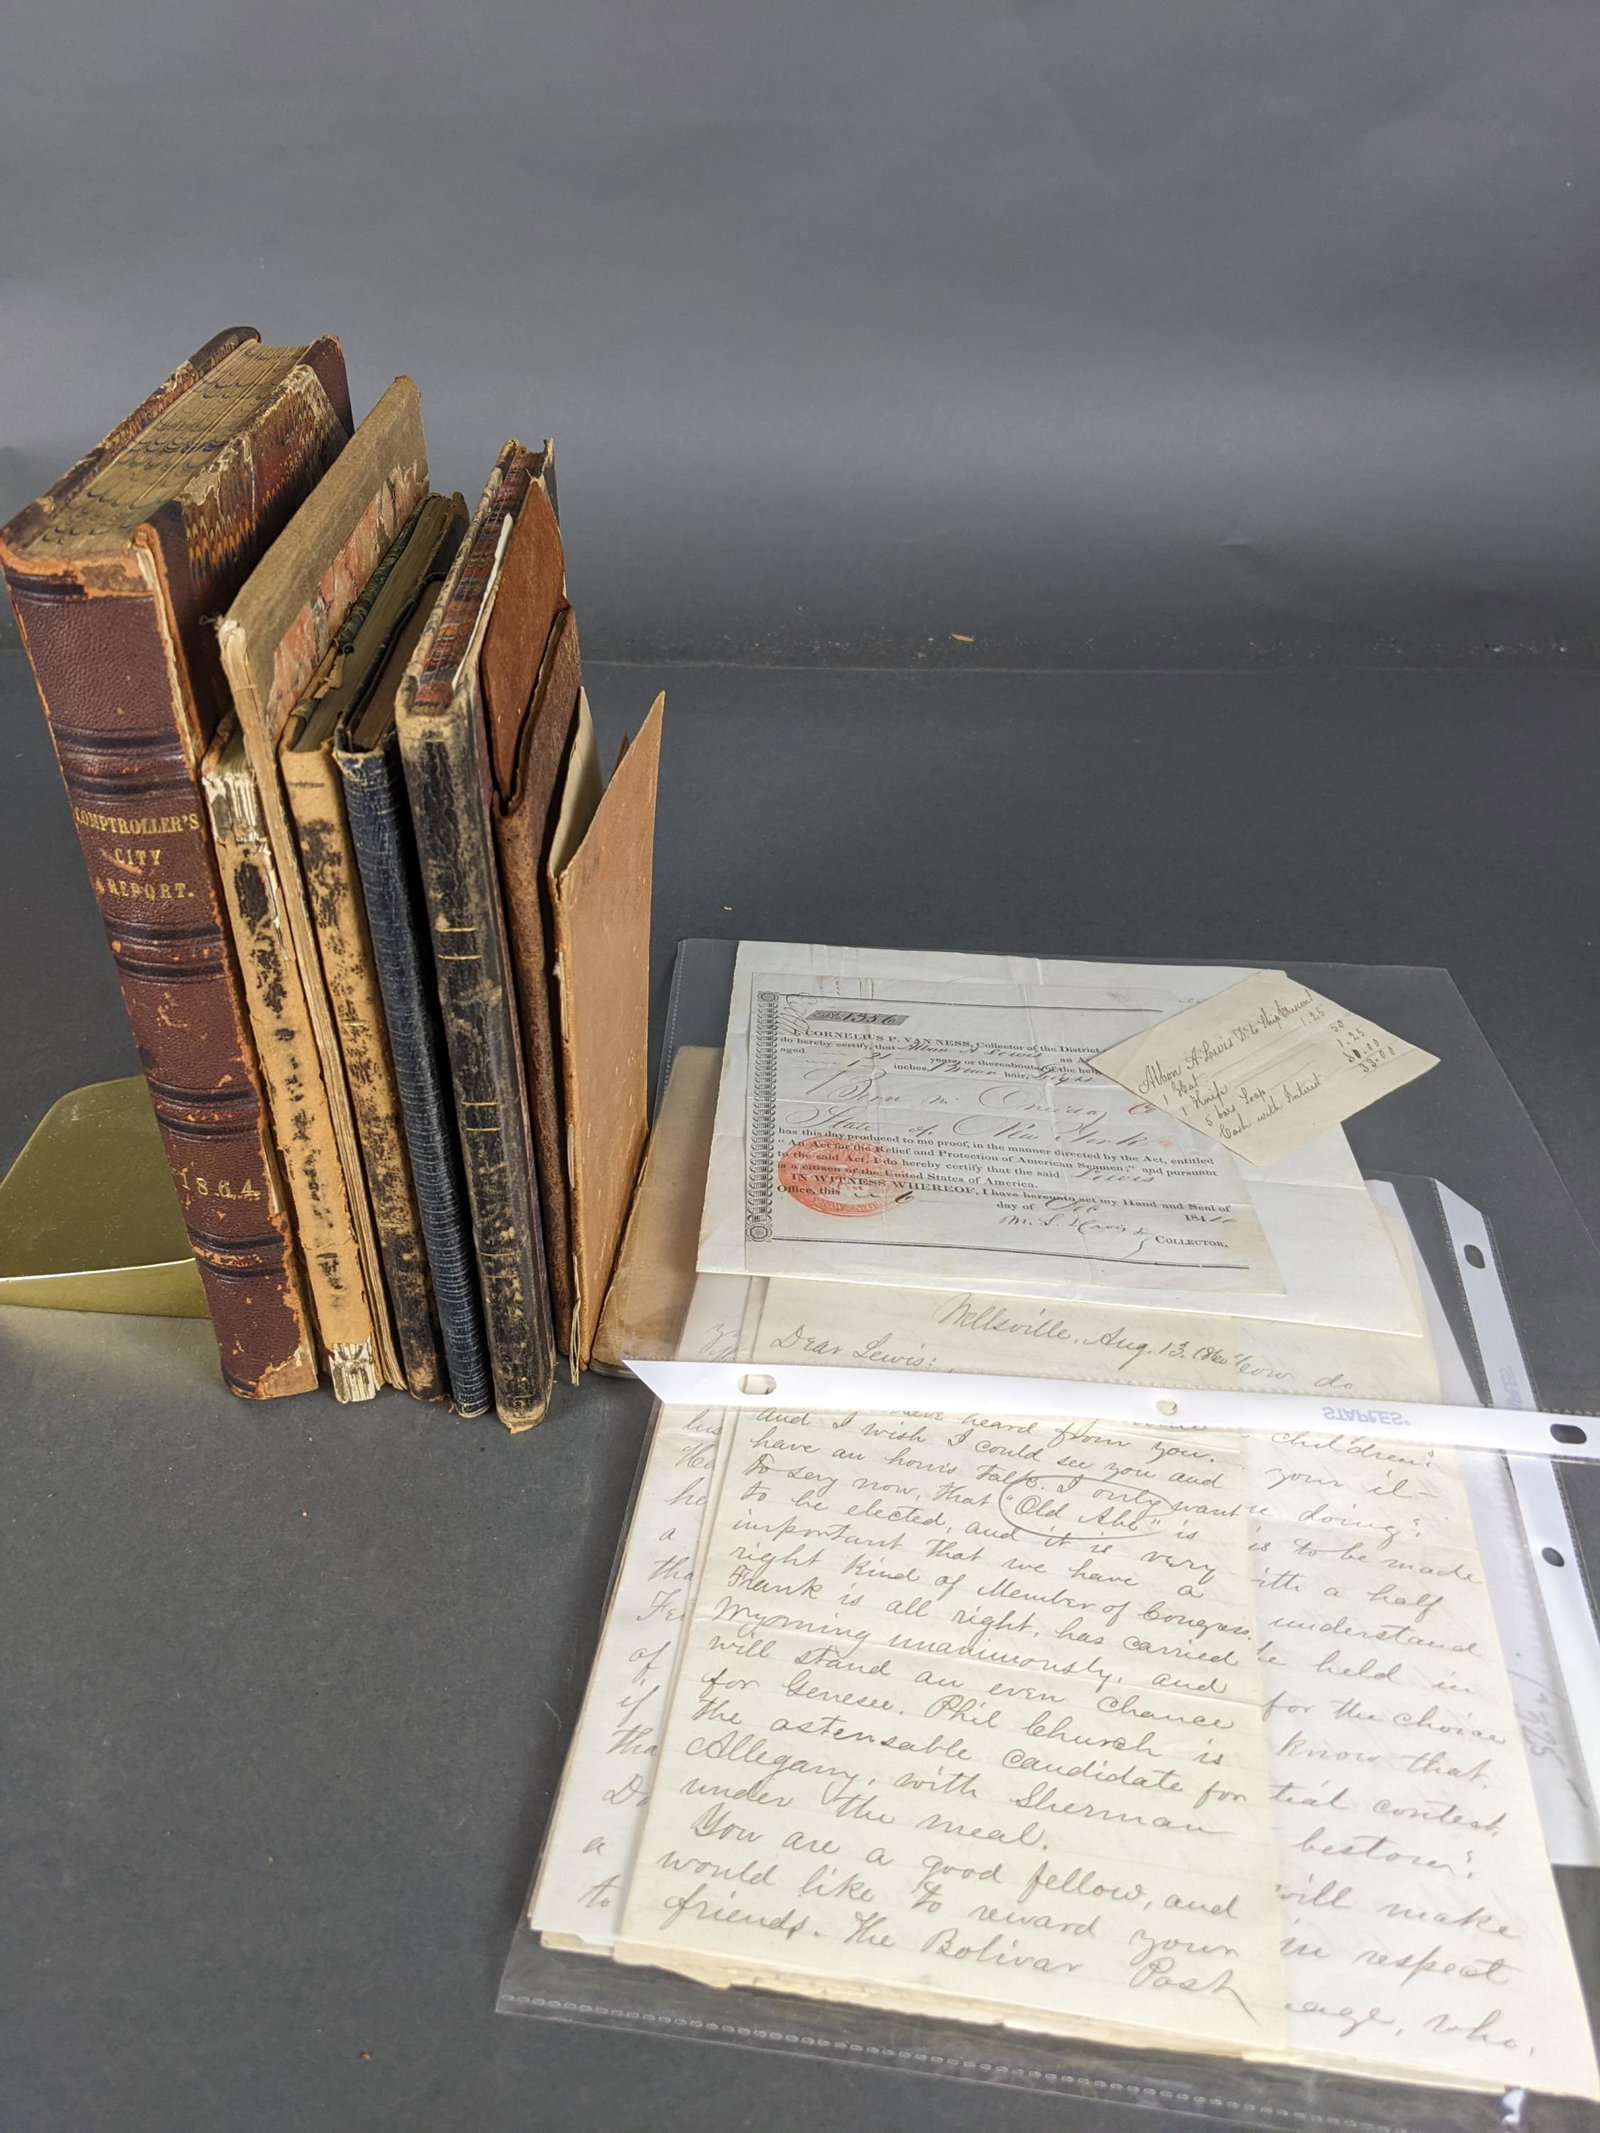 COMPTROLLER'S
CITY
REPORT.
1864.
No. 1356
I, CORNELIUS P. VAN NESS, Collector of the District
do hereby certify, that Albon A Lewis an A
aged 21 years, or thereabouts, of the heig
inches, Brown hair, Light
Born in Oneida Co
State of New York
has this day produced to me proof, in the manner directed by the Act, entitled
"An Act for the Relief and Protection of American Seamen;" and pursuant
to the said Act, I do hereby certify that the said Lewis
is a citizen of the United States of America.
IN WITNESS WHEREOF, I have hereunto set my Hand and Seal of
Office, this 6 day of 184
COLLECTOR.
Albon A. Lewis Dr. to Ship
1 Hat 1.25
1 Knife 50
5 bars Soap 1.25
Cash with Interest 30.00
33.00
Wellsville, Aug. 13. 1860
Dear Lewis:
heard from you.
and I wish I could see you and
have an hour's talk. I only want
to say now, that "Old Abe" is
to be elected, and it is very
important that we have a
right kind of Member of Congress.
Frank is all right, has carried
Wyoming unanimously, and
will stand an even chance
for Genesee. Phil Church is
the astensable candidate for
Allegany, with Sherman
under the meal.
You are a good fellow, and
would like to reward your
friends. The Bolivar Post
STAPLES
how do
children?
your il-
doing?
is to be made
ith a half
understand
be held in
for the choice
know that,
tial contest.
bestow?
will make
in respect
age, who,
he
a
tha
of
if
tha
Do
a
to